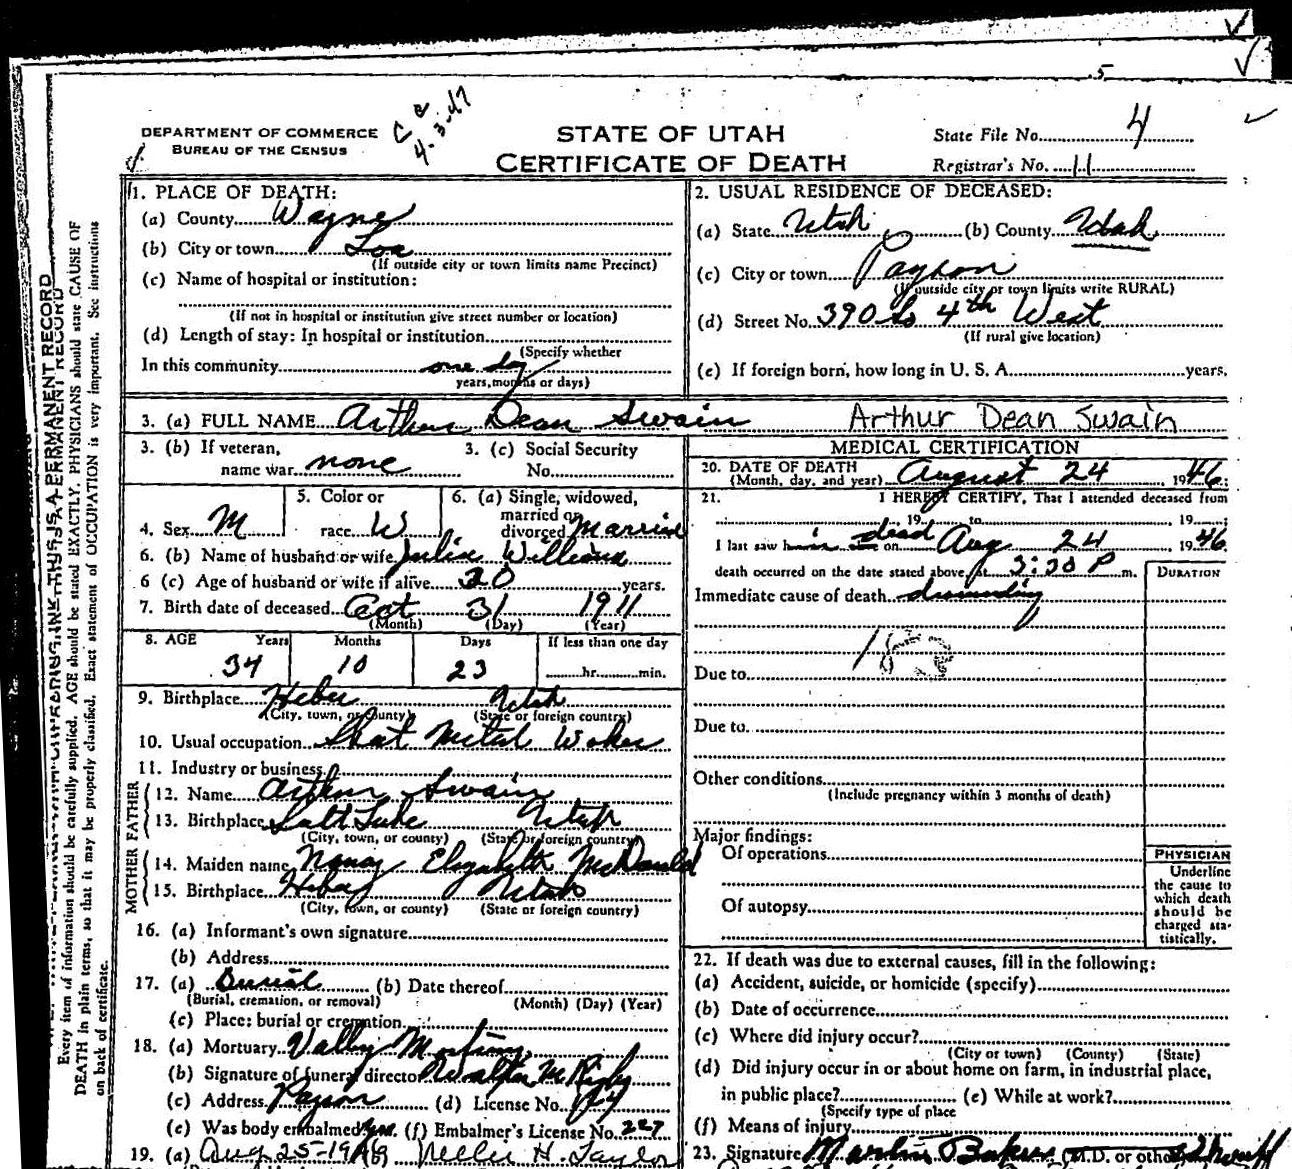 .5
C a
4-3-47
DEPARTMENT OF COMMERCE
BUREAU OF THE CENSUS
STATE OF UTAH
CERTIFICATE OF DEATH
State File No. 4
Registrar's No. 11
THIS IS A PERMANENT RECORD
Every item of information should be carefully supplied. AGE should be stated EXACTLY. PHYSICIANS should state CAUSE OF
DEATH in plain terms, so that it may be properly classified. Exact statement of OCCUPATION is very important. See instructions
on back of certificate.
1. PLACE OF DEATH:
(a) County Wayne
(b) City or town Loa
(If outside city or town limits name Precinct)
(c) Name of hospital or institution:
(If not in hospital or institution give street number or location)
(d) Length of stay: In hospital or institution
(Specify whether
In this community one day
years, months or days)
2. USUAL RESIDENCE OF DECEASED:
(a) State Utah (b) County Utah
(c) City or town Payson
(If outside city or town limits write RURAL)
(d) Street No. 390 So 4th West
(If rural give location)
(e) If foreign born, how long in U. S. A. years.
3. (a) FULL NAME Arthur Dean Swain Arthur Dean Swain
3. (b) If veteran, name war none
3. (c) Social Security No.
4. Sex M
5. Color or race W
6. (a) Single, widowed, married or divorced Married
6. (b) Name of husband or wife Julia Williams
6 (c) Age of husband or wife if alive 30 years.
7. Birth date of deceased Oct 31 1911
(Month) (Day) (Year)
8. AGE Years Months Days If less than one day
34 10 23 hr. min.
9. Birthplace Heber Utah
(City, town, or county) (State or foreign country)
10. Usual occupation Sheet Metal Woker
11. Industry or business
FATHER
12. Name Arthur Swain
13. Birthplace Salt Lake Utah
(City, town, or county) (State or foreign country)
MOTHER
14. Maiden name Nancy Elizabeth McDonald
15. Birthplace Heber Utah
(City, town, or county) (State or foreign country)
16. (a) Informant's own signature
(b) Address
17. (a) Burial (b) Date thereof
(Burial, cremation, or removal) (Month) (Day) (Year)
(c) Place: burial or cremation
18. (a) Mortuary Valley Mortuary
(b) Signature of funeral director Walter M Rigby
(c) Address Payson (d) License No.
(e) Was body embalmed yes. (f) Embalmer's License No. 227
19. (a) Aug 25-1946 Nellie H. Taylor
MEDICAL CERTIFICATION
20. DATE OF DEATH
(Month, day, and year) August 24, 1946
21. I HEREBY CERTIFY, That I attended deceased from
19 to , 19
I last saw him dead on Aug 24 1946
death occurred on the date stated above, at 3:30 P m.
DURATION
Immediate cause of death drownding
183
Due to
Due to
Other conditions
(Include pregnancy within 3 months of death)
Major findings:
Of operations
Of autopsy
PHYSICIAN
Underline
the cause to
which death
should be
charged sta-
tistically.
22. If death was due to external causes, fill in the following:
(a) Accident, suicide, or homicide (specify)
(b) Date of occurrence
(c) Where did injury occur?
(City or town) (County) (State)
(d) Did injury occur in or about home on farm, in industrial place,
in public place? (e) While at work?
(Specify type of place
(f) Means of injury
23. Signature Marlin Baker (M.D. or other) Sheriff